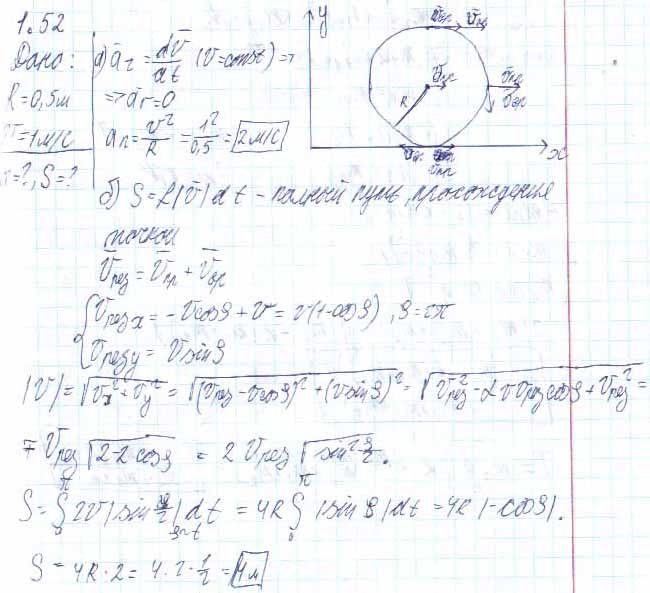 1.52
Дано:
R = 0,5м
v = 1м/с
S = ?
а) a̅τ = dv̅/dt (v = const) =>
=> a̅τ = 0
an = v²/R = 1²/0,5 = 2 м/с
y
x
R
v̅пр
v̅вр
v̅пр
v̅пр
v̅вр
б) S = ∫|v̅|dt - полный путь, прохождение
точкой
v̅рез = v̅пр + v̅вр
vрез x = -vcosφ + v = v(1-cosφ)
vрез y = vsinφ
|v| = √(vx² + vy²) = √((vрез - vcosφ)² + (vsinφ)²) = √(vрез² - 2vvрезcosφ + vрез²) =
= vрез√(2-2cosφ) = 2vрез√(sin²φ/2).
S = ∫₀^π 2v|sin φ/2|dt = 4R ∫₀^π |sin φ|dt = 4R|-cosφ|.
S = 4R·2 = 4·2·1/2 = 4м